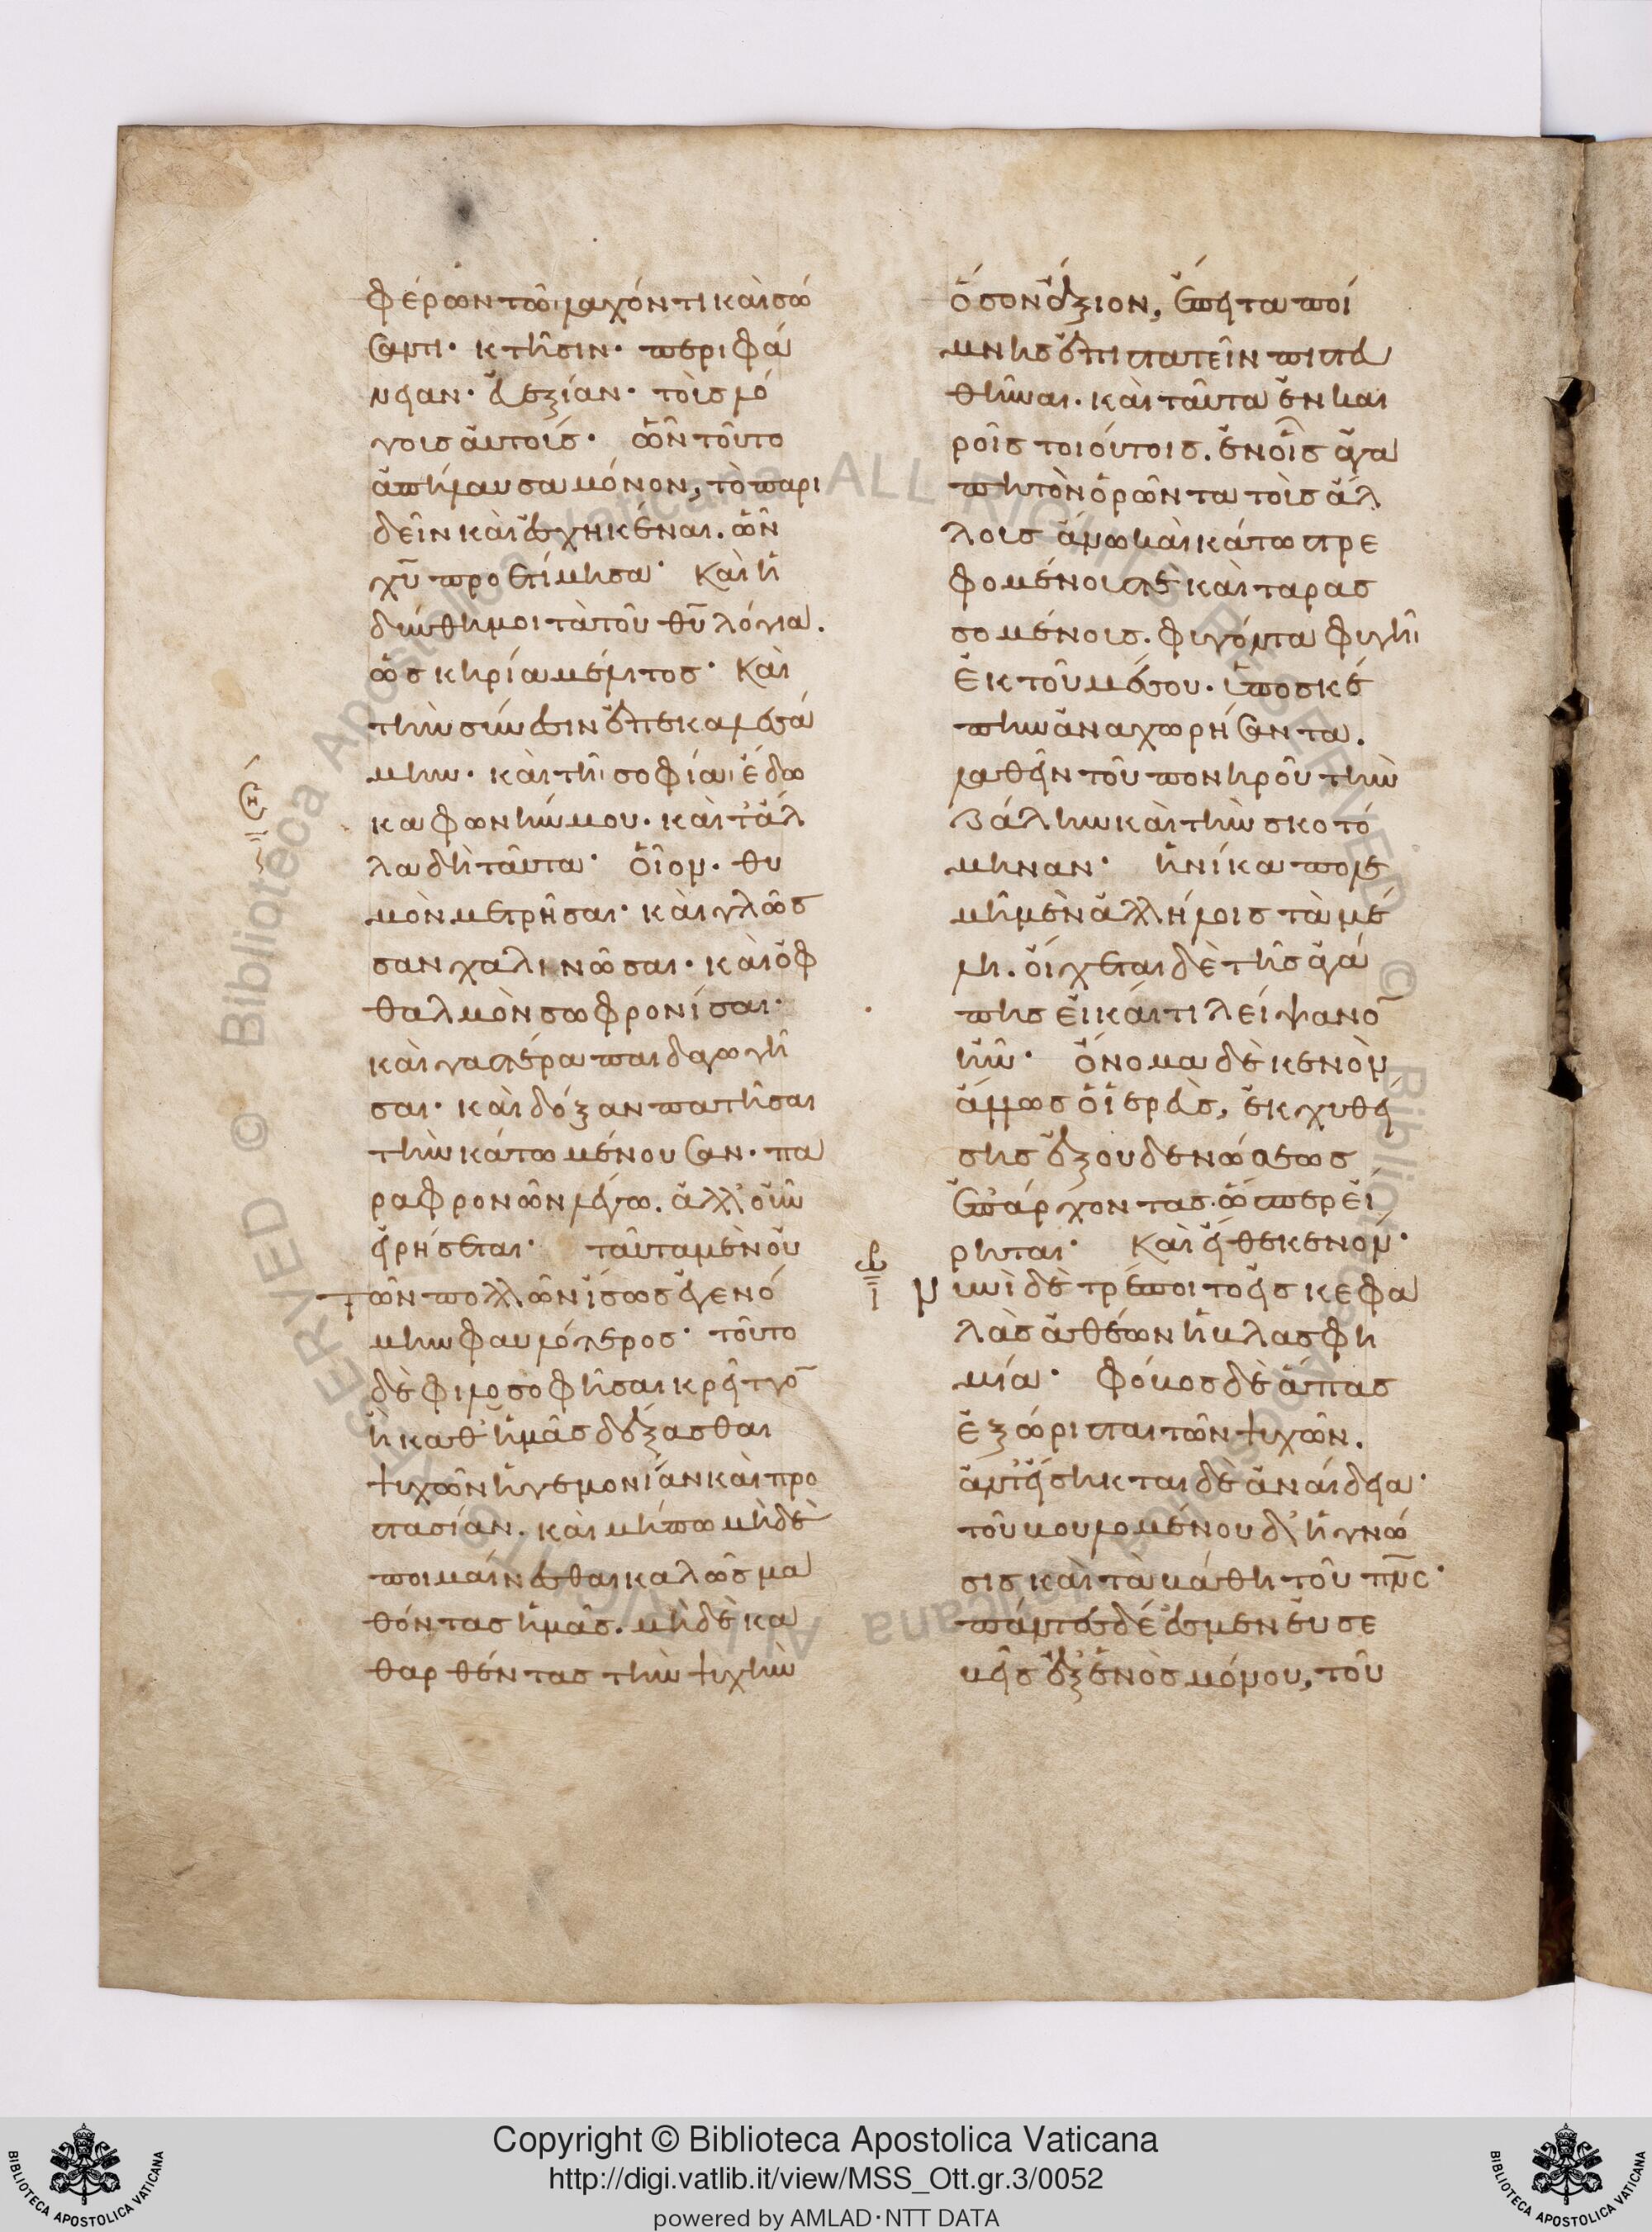 φέρων τῶι λαχόντι καὶ σώ
σαντι· κτῆσιν· περιφά
νειαν· εὐεξίαν· τοὺς λό
γους αὐτούς· ὧν τοῦτο
ἀπήλαυσα μόνον, τὸ παρι
δεῖν καὶ ἐσχηκέναι. ὧν
χ̅υ̅ προετίμησα· Καὶ ἡ
δύνθη μοι τὰ τοῦ θ̅υ̅ λόγια.
ὡς κηρία μέλιτος· Καὶ
τὴν σύνεσιν ἐπεκαλεσά
μην· καὶ τῆι σοφίαι ἔδω
κα φωνήν μου· καὶ τἄλ
λα δὴ ταῦτα· οἷον· θυ
μὸν μετρῆσαι· καὶ γλῶσ
σαν χαλινῶσαι· καὶ ὀφ
θαλμὸν σωφρονίσαι·
καὶ γαστέρα παιδαγωγῆ
σαι· καὶ δόξαν πατῆσαι
τὴν κάτω μένουσαν· πα
ραφρονῶν λέγω. ἀλλ' οὖν
εἰρήσεται· ταῦτα μὲν οὐ
τῶν πολλῶν ἴσως ἐγενό
μην φαυλότερος· τοῦτο
δὲ φιλοσοφῆσαι κρεῖττο̅
ἢ καθ' ἡμᾶς δέξασθαι
ψυχῶν ἡγεμονίαν καὶ προ
στασίαν. καὶ μήπω μηδὲ
ποιμαίνεσθαι καλῶς μα
θόντας ἡμᾶς. μηδὲ κα
θαρθέντας τὴν ψυχὴν
ὅσον ἄξιον, ἔπειτα ποί
μνης ἐπιστατεῖν πιστευ
θῆναι. καὶ ταῦτα ἐν και
ροῖς τοιούτοις. ἐν οἷς ἀγα
πητὸν ὁρῶντα τοὺς ἄλ
λους ἄνω καὶ κάτω στρε
φομένους τὲ καὶ ταρασ
σομένους. φυγόντα φυγῆι
ἐκ τοῦ μέσου. ὑπὸ σκέ
πην ἀναχωρήσαντα.
λαθεῖν τοῦ πονηροῦ τὴν
ζάλην καὶ τὴν σκοτό
μηναν· ἡνίκα πολε
μῆ μὲν ἀλλήλοις τὰ μέ
λη. οἴχεται δὲ τῆς ἀγά
πης εἰ καί τι λείψανο̅
ἦν· ὄνομα δὲ κενὸν
ἄλλως ὁ ἱερεὺς, ἐκχυθεί
σης ἐξουδενώσεως
ἐπ' ἄρχοντας. ὥσπερ εἴ
ρηται· Καὶ εἴθε κενόν·
νυνὶ δὲ τρέποιτο εἰς κεφα
λὰς ἀθέων ἡ βλασφη
μία· φόβος δὲ ἅπας
ἐξώρισται τῶν ψυχῶν.
ἀντεισῆκται δὲ ἀναίδεια·
τοῦ βουλομένου δ' ἡ γνῶ
σις καὶ τὰ βάθη τοῦ π̅ν̅ς̅·
πάντες δέ ἐσμεν εὐσε
βεῖς ἐξ ἑνὸς μόνου, τοῦ
Copyright © Biblioteca Apostolica Vaticana
http://digi.vatlib.it/view/MSS_Ott.gr.3/0052
powered by AMLAD·NTT DATA
BIBLIOTECA APOSTOLICA VATICANA
BIBLIOTECA APOSTOLICA VATICANA